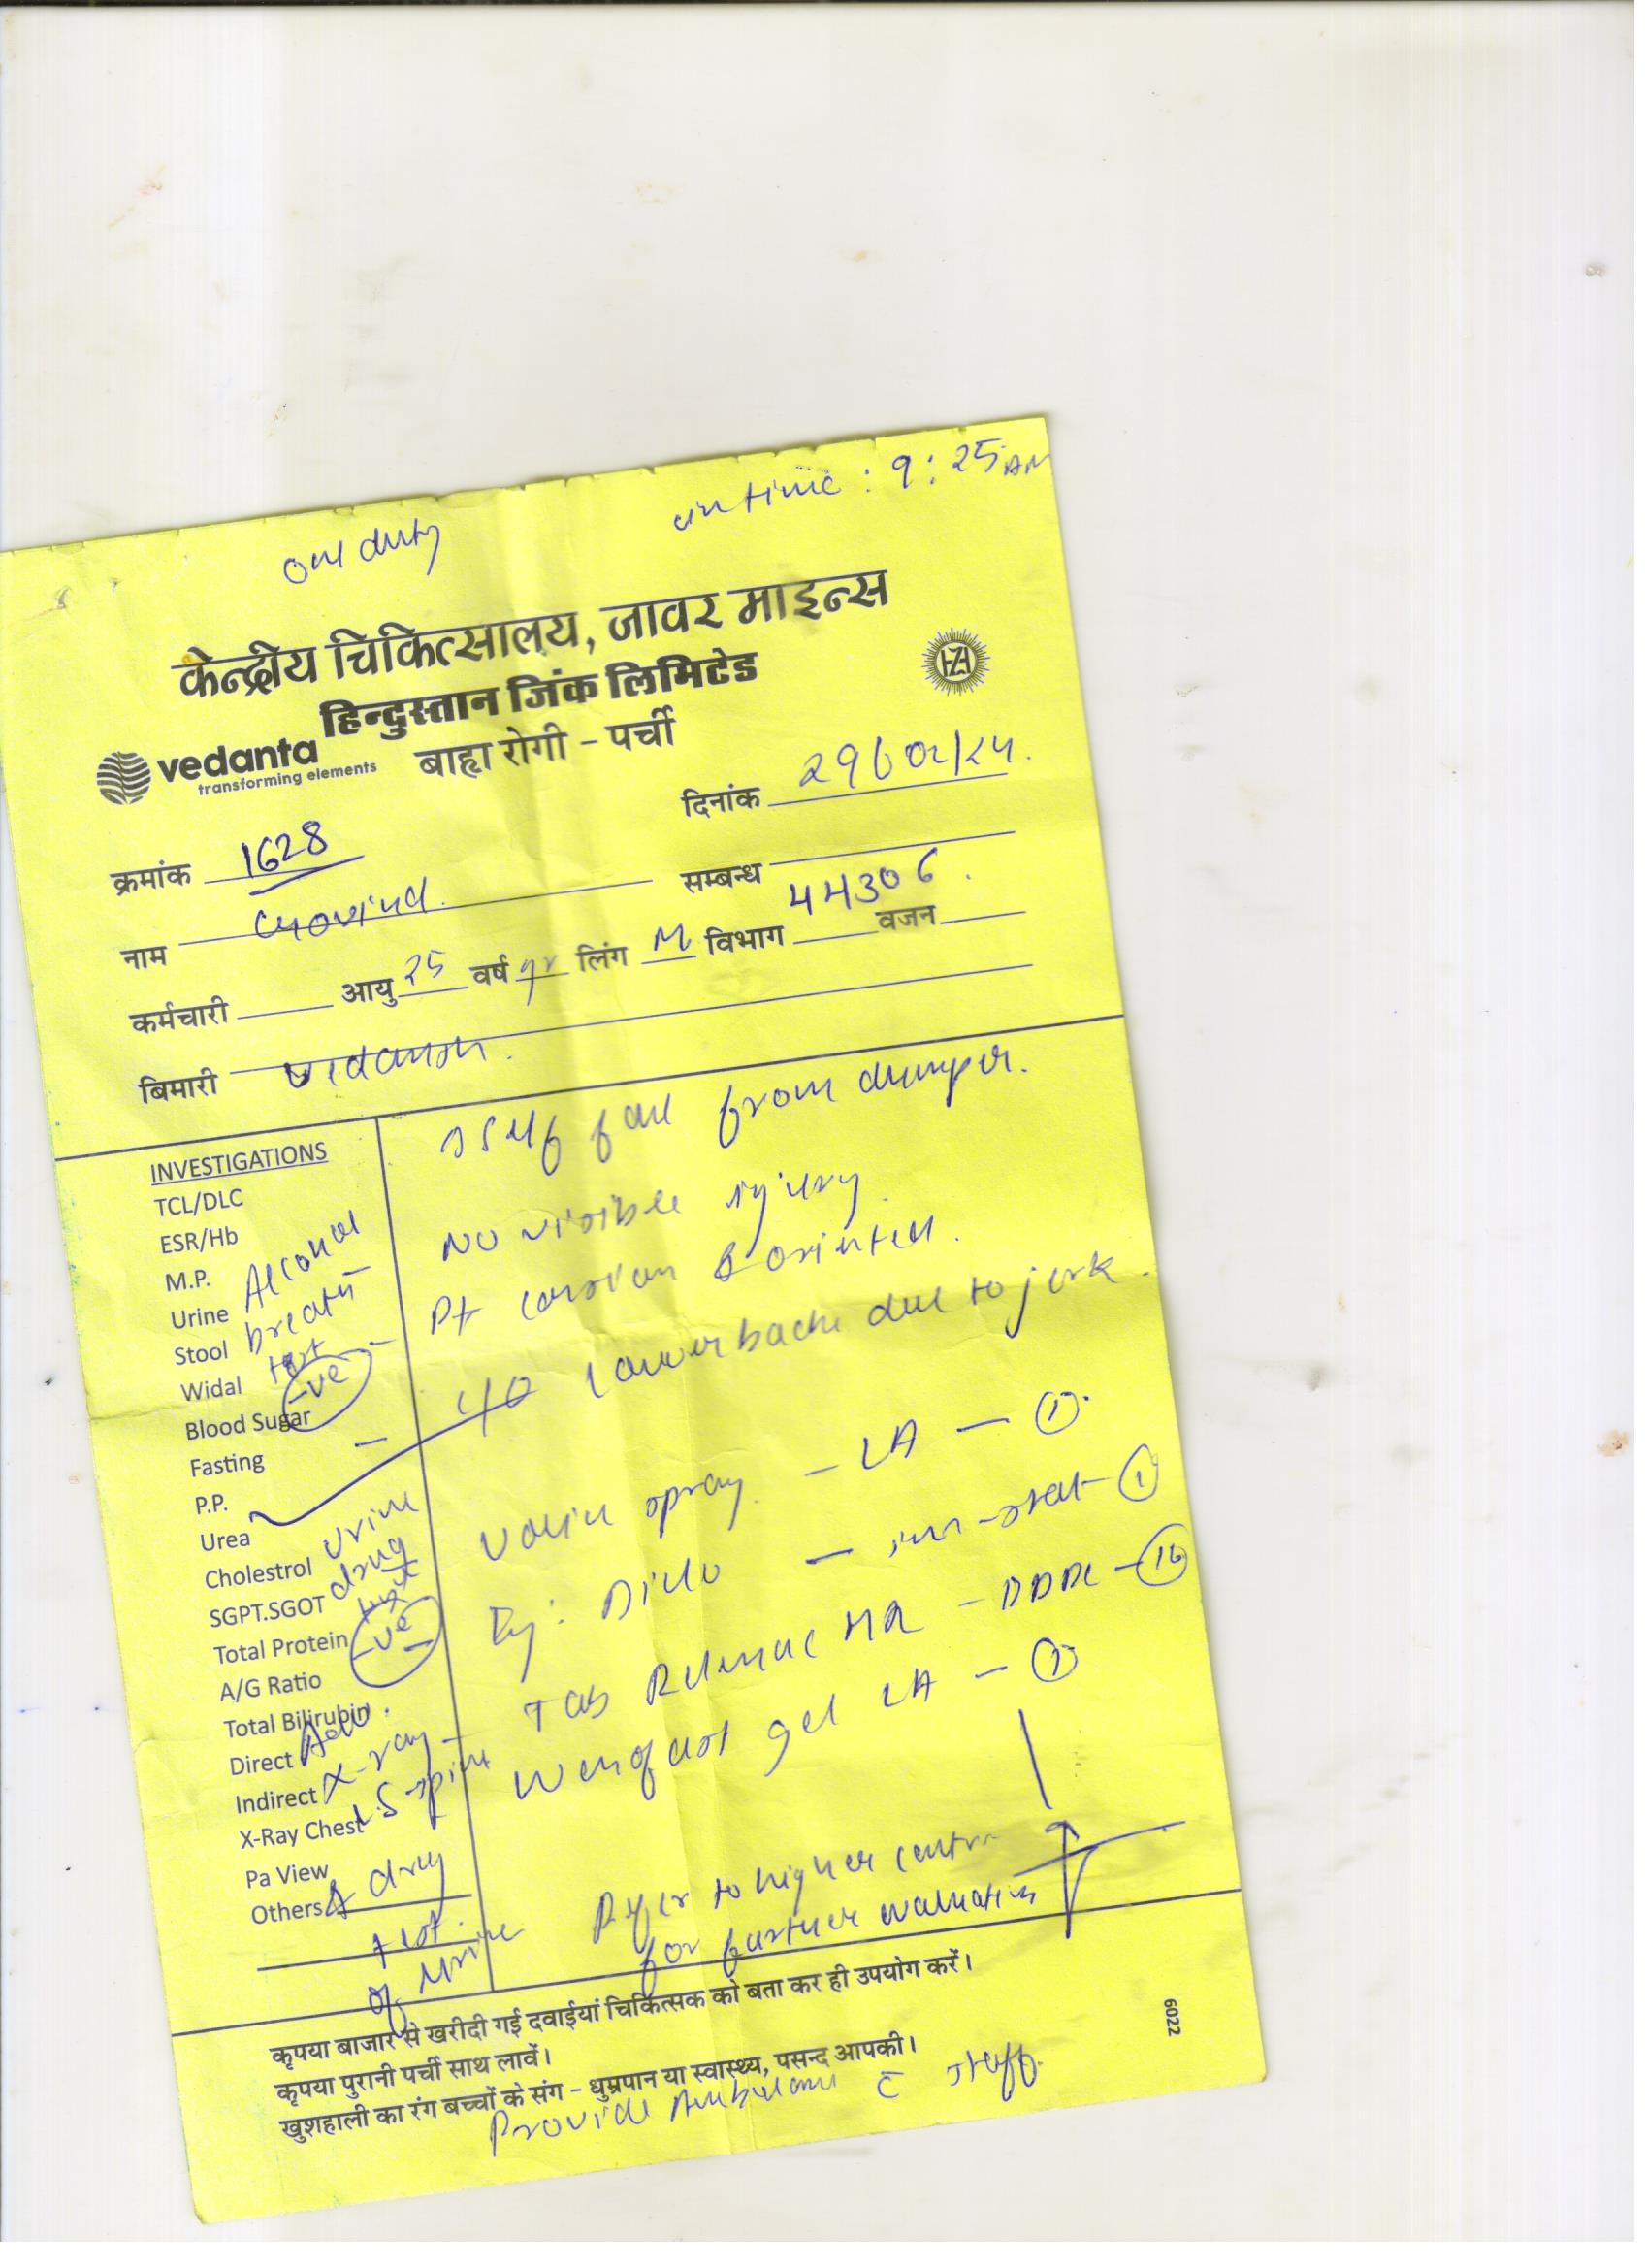 on duty
in time : 9 : 25 AM
केन्द्रीय चिकित्सालय, जावर माइन्स
हिन्दुस्तान जिंक लिमिटेड
HZL
vedanta
transforming elements
बाह्य रोगी - पर्ची
दिनांक 29/02/24.
क्रमांक 1628
सम्बन्ध
नाम Govind.
44306.
कर्मचारी आयु 25 वर्ष yr लिंग M विभाग वजन
बिमारी
self fall from dumper.
INVESTIGATIONS
TCL/DLC
ESR/Hb
No visible injury.
M.P. Alcohol
Urine
Pt & oriented.
Stool breath
Widal test
-ve
Blood Sugar
c/o Lower back due to jerk.
Fasting
P.P.
Urea
spray. - LA - 1.
Cholestrol urine
SGPT.SGOT drug
Inj: - im-stat- 1
Total Protein -ve
A/G Ratio
Tab MR - - 10
Total Bilirubin
Direct Adv.
gel LA - 1
Indirect X-ray
X-Ray Chest L.S spine
Pa View
Others & drug
test
of urine
Refer to higher centre
for further evaluation
कृपया बाजार से खरीदी गई दवाईयां चिकित्सक को बता कर ही उपयोग करें।
कृपया पुरानी पर्ची साथ लावें।
खुशहाली का रंग बच्चों के संग - धुम्रपान या स्वास्थ्य, पसन्द आपकी।
Provide Ambulance c staff.
6022